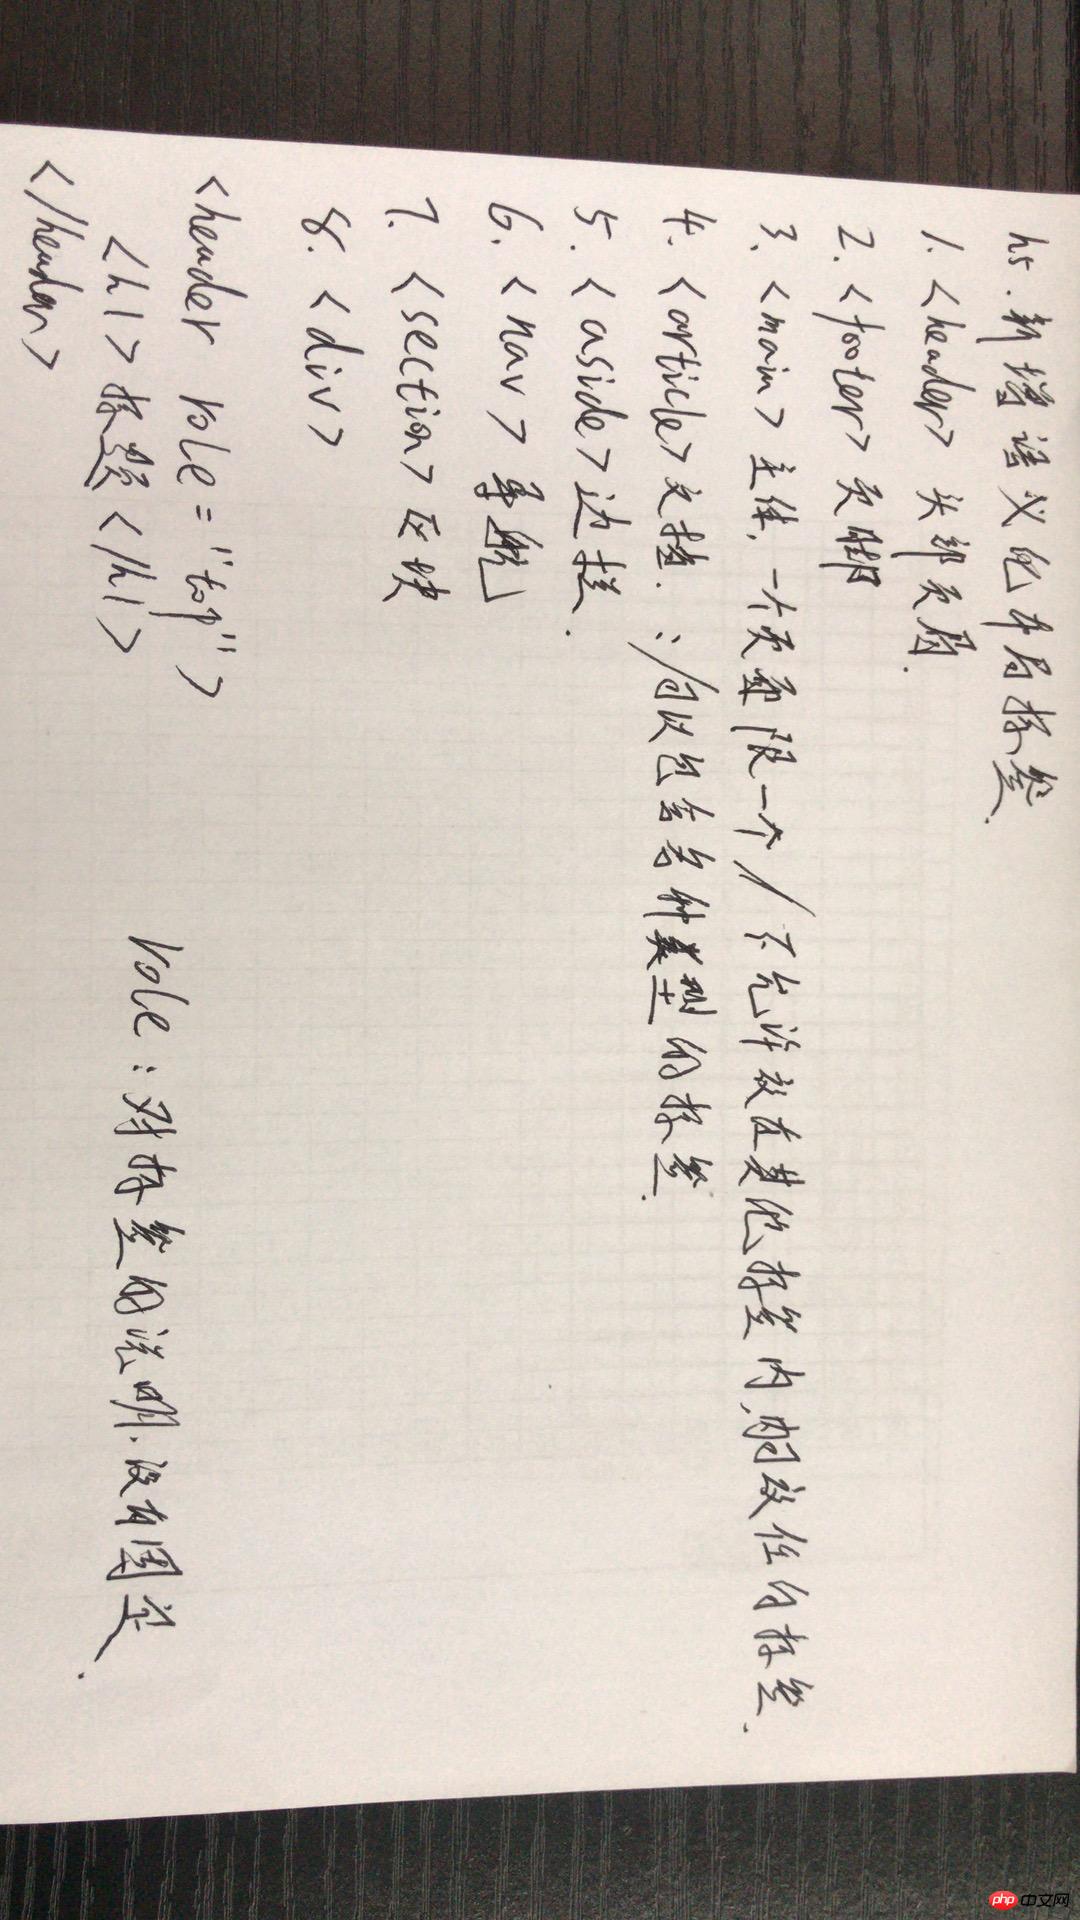 h5.新增语义化布局标签.
1.<header>头部页眉.
2.<footer>页脚
3.<main>主体,一个页面限一个/不允许放在其他标签内,可放任何标签.
4.<article>文档.:/可以包含各种类型的标签.
5.<aside>边栏.
6.<nav>导航
7.<section>区块
8.<div>
<header role="top">
<h1>标题</h1>
role:对标签的说明.没有固定.
</header>
php 中文网